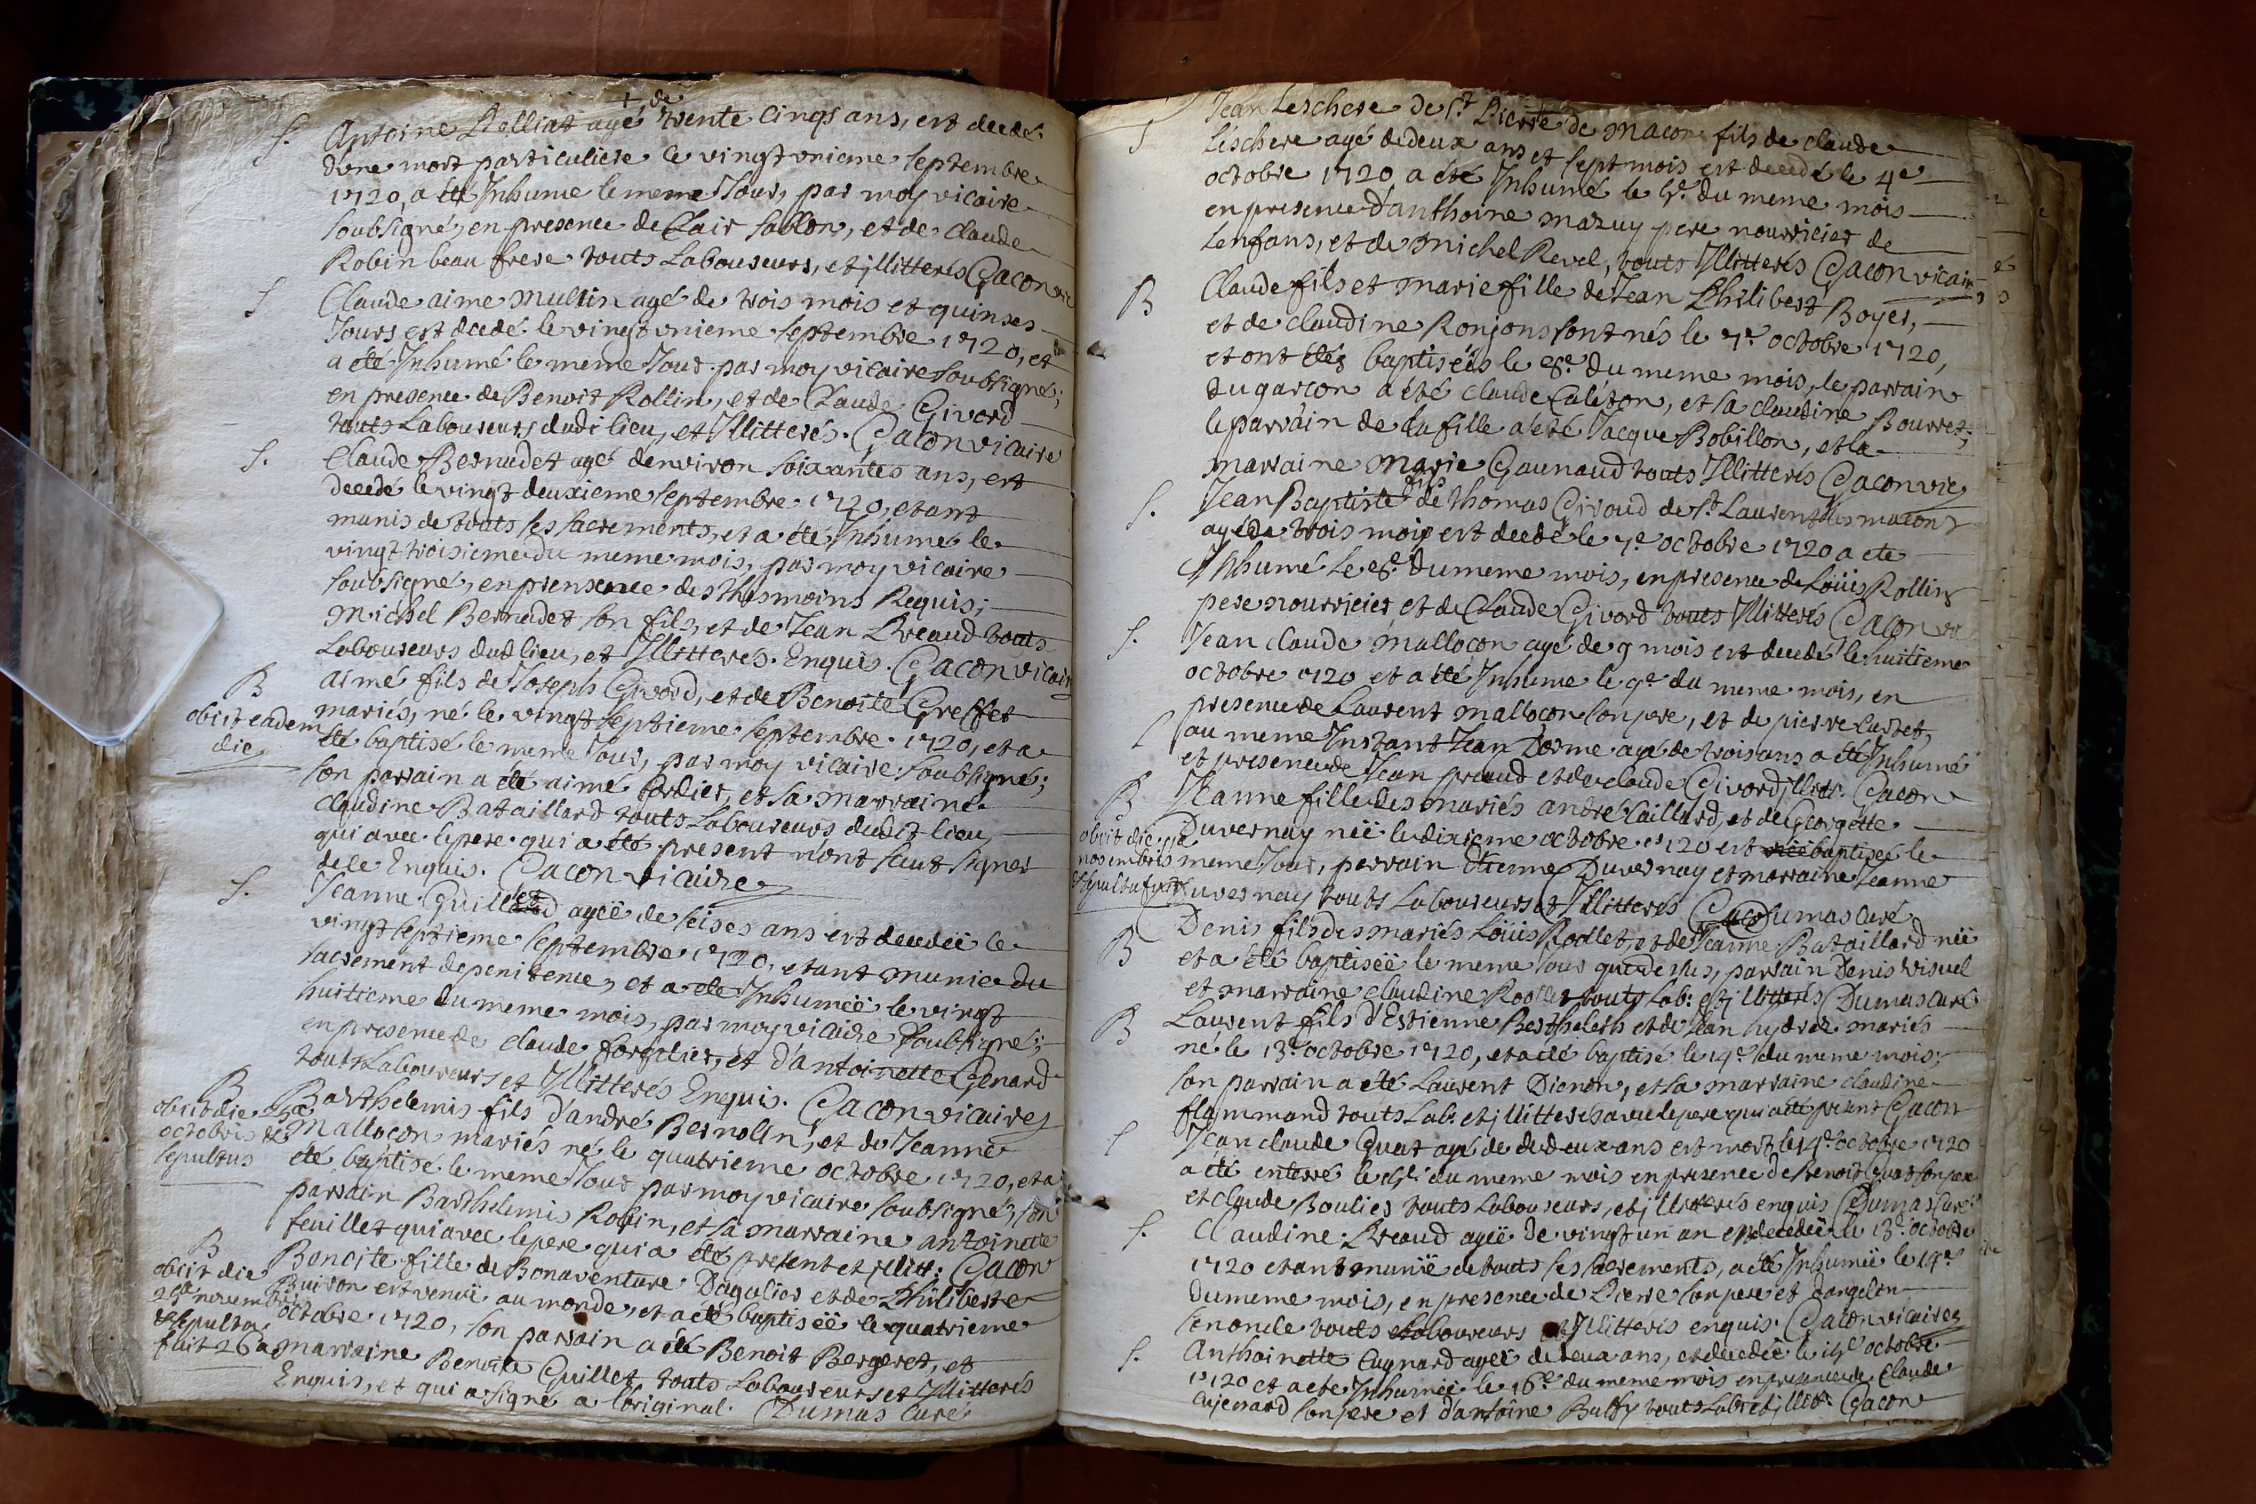 S. Antoine Rolliat agé +de trente cinqs ans, est decdé
dune mort particuliere le vingt unieme septembre
1720, a été Inhume le meme Jour, par moy vicaire
soubsigné, en presence de Clair Sallon, et de Claude
Robin beau frere touts Laboureurs, et jllitterés Gacon vic
S Claude aime Multin agé de trois mois et quinses
Jours est decdé le vingt unieme septembre 1720, et
a été Inhumé le meme Jour par moy vicaire soubsigné;
en presence de Benoit Rollin, et de Claude Givord
touts Laboureurs dudi lieu, et Jllitterés. Gacon vicaire
S. Claude Bernudet agé denviron soixantes ans, est
decedé le vingt deuxieme septembre 1720, etant
munis de touts ses sacrements, et a été Inhumé le
vingt troisieme du meme mois, par moy vicaire
soubsigné, en prensence des thesmoins Requis;
Michel Bernudet son fils, et de Jean Breaud touts
Laboureurs dud lieu, et Jllitteres. Enquis. Gacon vicair
B aimé fils de Joseph Givord, et de Benoite Greffet
obiit eadem die
mariés, né le vingt septieme septembre 1720, et a
été baptisé le meme Jour, par moy vicaire soubsigné;
son parrain a été aimé Cordier, et sa marraine
claudine Bataillard touts Laboureurs dudit lieu
qui avec le pere qui a été present n'ont sceut signer
de ce Enquis. Gacon vicaire
S. Jeanne Guilled ageë de seises ans est decedeë le
vingt septieme septembre 1720, etant munie du
sacrement de penitence, et a été Inhumeë le vingt
huitieme du meme mois, par moy vicaire soubsigné;
en presence de claude forgelier, et d'antoinette Genard
touts Laboureurs et Jllitterés Enquis. Gacon vicaire
B Barthelemis fils d'andré Bernolin, et de Jeanne
obiit die
octobris et
sepultus
Mallocon mariés né le quatrieme octobre 1720, et a
été baptisé le meme Jour par moy vicaire soubsigné, son
parrain Barthelemis Robin, et sa marraine antoinette
feuillet qui avec le pere qui a été present et jllitt: Gacon
B Benoite fille de Bonaventure Dagalier et de Philiberte
obiit die
25e novembris
et sepultura
fuit 26a
Buiron est venuë au monde, et a été baptiseë le quatrieme
octobre 1720, son parrain a été Benoit Bergeret, et
marraine Benoite Guillet touts Laboureurs et Jllitterés
Enquis, et qui a signé a l'original. Dumas Curé
S Jean Leschere de St. Pierre de macon fils de claude
Léschere agé de deux ans et sept mois est decedé le 4e
octobre 1720 a été Inhumé le 5e. du meme mois
en presence d'anthoine mazuy pere nourricier de
lenfans, et de michel Revel, touts Jllitterés Gacon vicair
B Claude fils et marie fille de Jean Philibert Boyer,
et de claudine Ronjon sont nés le 7e octobre 1720,
et ont étés baptiséés le 8e. du meme mois, le parrain
du garcon a été claude Caléton, et sa claudine Bourret;
le parrain de la fille a été Jacque Bobillon, et la
marraine marie Gaunaud touts Jllitterés Gacon vic
S. Jean Baptiste fils de thomas Giroud de St Laurent les macon
agé de trois mois est decdé le 7e octobre 1720 a été
Inhumé le 8e. du meme mois, en presence de Loüis Rollin
pere nourricier et de Claude Givord touts Jllitterés Gacon vi
S. Jean claude Mallocon agé de 9 mois est decedé le huitieme
octobre 1720 et a été Inhume le 9e du meme mois, en
presence de Laurent mallocon son pere, et de pierre Curtet,
S au meme Instant Jean Dorme agé de trois ans a été Inhumé
et presence de Jean preaud et de claude Givord jllitt. Gacon
B Jeanne fille des mariés andré Caillard, et de Georgette
obiit die
novembris
et sepulta fuit
Duvernay neë le dixieme octobre 1720 est baptiseé le
meme Jour, parrain Etienne Duvernay et marraine Jeanne
Duvernay touts Laboureurs et Jllitterés Dumas Curé
B Denis fils des mariés Loüis Roollet, et de Jeanne Bataillard neë
et a été baptiseë le meme Jour que dessus, parrain Denis Visuel
et marraine claudine Roollet touts Lab: et jllitterés Dumas Curé
B Laurent fils d'Estienne Bertheleth et de Jean hydrez mariés
né le 13e. octobre 1720, et a été baptisé le 14e. du meme mois;
son parrain a été Laurent Dionon, et sa marraine claudine
flammand touts Lab: et jllitterés avec le pere qui a été présent Gacon
S Jean claude Guat agé de de deux ans est mort le 14e. octobre 1720
a été enterré le 15e du meme mois en presence de Benoit Guat son pere
et claude Boulier touts Laboureurs, et jllitterés enquis Dumas Curé
S. Claudine Breaud ageë de vingt un an est decedeë le 13e. octobre
1720 etant munië de touts ses sacrements, a été Inhumeë le 14e
du meme mois, en presence de Pierre son pere et dangelon
son oncle touts Laboureurs et Jllitterés enquis. Gacon vicaire
S. Anthoinette Cugnard ageë de deux ans, est decedeë le 15e octobre
1720 et a été Inhumeë le 16e. du meme mois en presence de Claude
Cujenard son pere et d'antoine Buffy touts Lab: et jllitt. Gacon